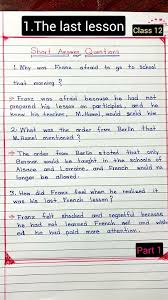 1.The last lesson
Class 12
Short Answer Questions
1. Why was Franz afraid to go to school
that morning?
→ Franz was afraid because he had not
prepared his lesson on participles, and he
knew his teacher, M. Hamel, would scold him.
2. What was the order from Berlin that
M. Hamel mentioned?
→ The order from Berlin stated that only
German would be taught in the schools of
Alsace and Lorraine, and French would no
longer be allowed.
3. How did Franz feel when he realised it
was his last French lesson?
→ Franz felt shocked and regretful because
he had not learned French well and wish-
ed he had paid more attention.
Part 1